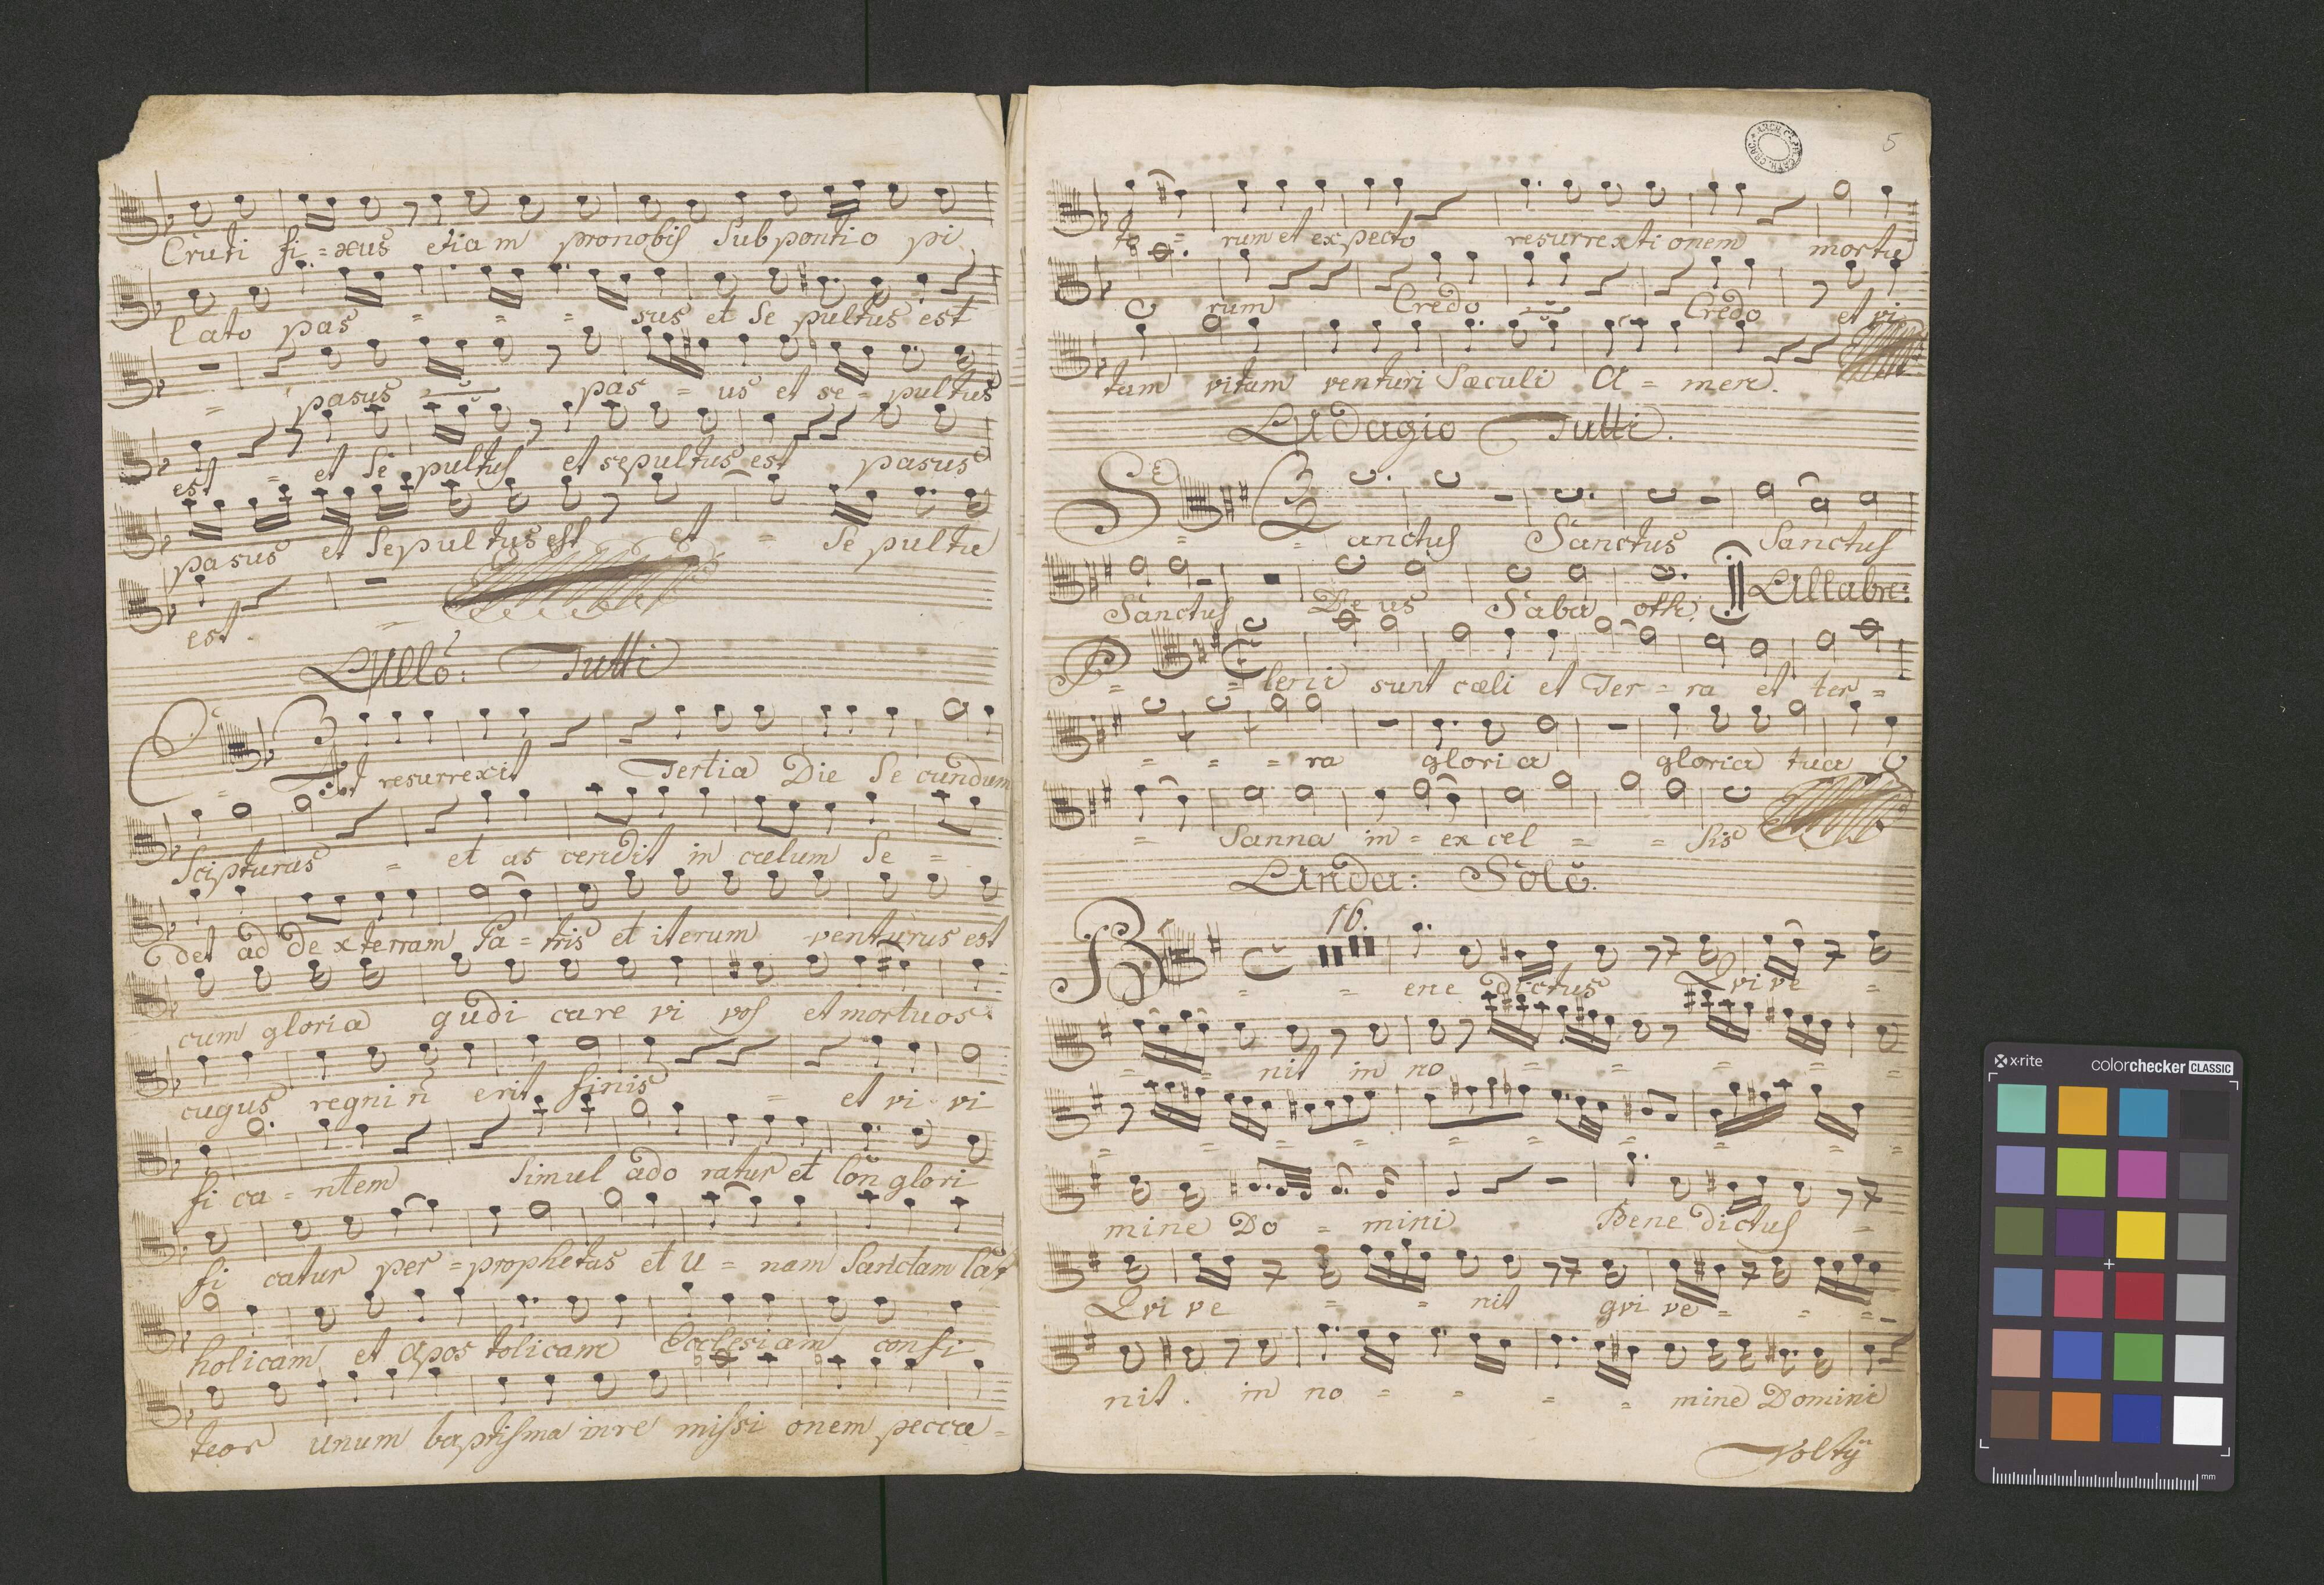 Cruti fi = xus etiam pronobis Subpontio pi
lato pas = = = sus et Se pultus est
= pasus pas = us et se = pultus
est = et Se pultus et sepultus est pasus
pasus et Sepultus est et = Se pultu
est. =
All̊o: Tutti
Et resurrexit Tertia Die Se cundum
Scipturas = et as cendit in cælum Se =
det ad De xterram Pa = tris et iterum venturus est
cum gloria gudi care vi vos et mortuos
cugus regni n̄ erit finis = et vi vi
fi ca = ntem Simul ado ratur et Con glori
fi catur per = prophetas et u = nam Sanctam Cat
holicam et Apos tolicam Ecclesiam confi
teor unum baptisma inre missi onem pecca =
5
ARCH. CAPIT. CATH. CRAC.
to = rum et expecto resurrexti onem mortu
rum Credo Credo et vi
tam vitam venturi Sæculi A = men.
Adagio Tutti.
S = = anctus Sanctus Sanctus
Sanctus De us Saba oth: Allabre:
P = = leni sunt cæli et Ter = ra et ter =
= = = ra gloria gloria tua O
= Sanna in = ex cel = = Sis
Anda: Solo.
16.
B = = ene dictus Qvi ve =
= = nit in no = = = = =
= = = = = = = = =
mine Do = mini Bene dictus =
Qvi ve = = nit qvi ve = = =
nit. in no = = = = mine Domini
Volty
x·rite colorchecker CLASSIC
mm